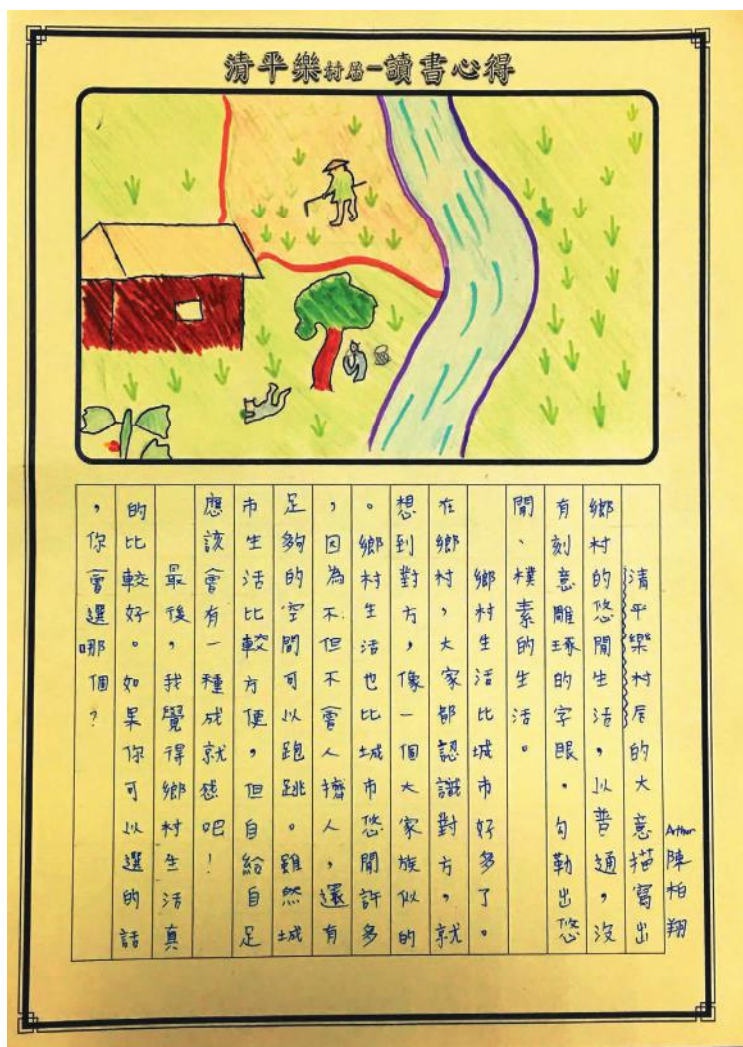 清平樂村居-讀書心得
Arthur 陳柏翔
清平樂村居的大意描寫出
鄉村的悠閒生活，以普通，沒
有刻意雕琢的字眼。勾勒出悠
閒、樸素的生活。
鄉村生活比城市好多了。
在鄉村，大家都認識對方，就
想到對方，像一個大家族似的
。鄉村生活也比城市悠閒許多
，因為不但不會人擠人，還有
足夠的空間可以跑跳。雖然城
市生活比較方便，但自給自足
應該會有一種成就感吧！
最後，我覺得鄉村生活真
的比較好。如果你可以選的話
，你會選哪個？